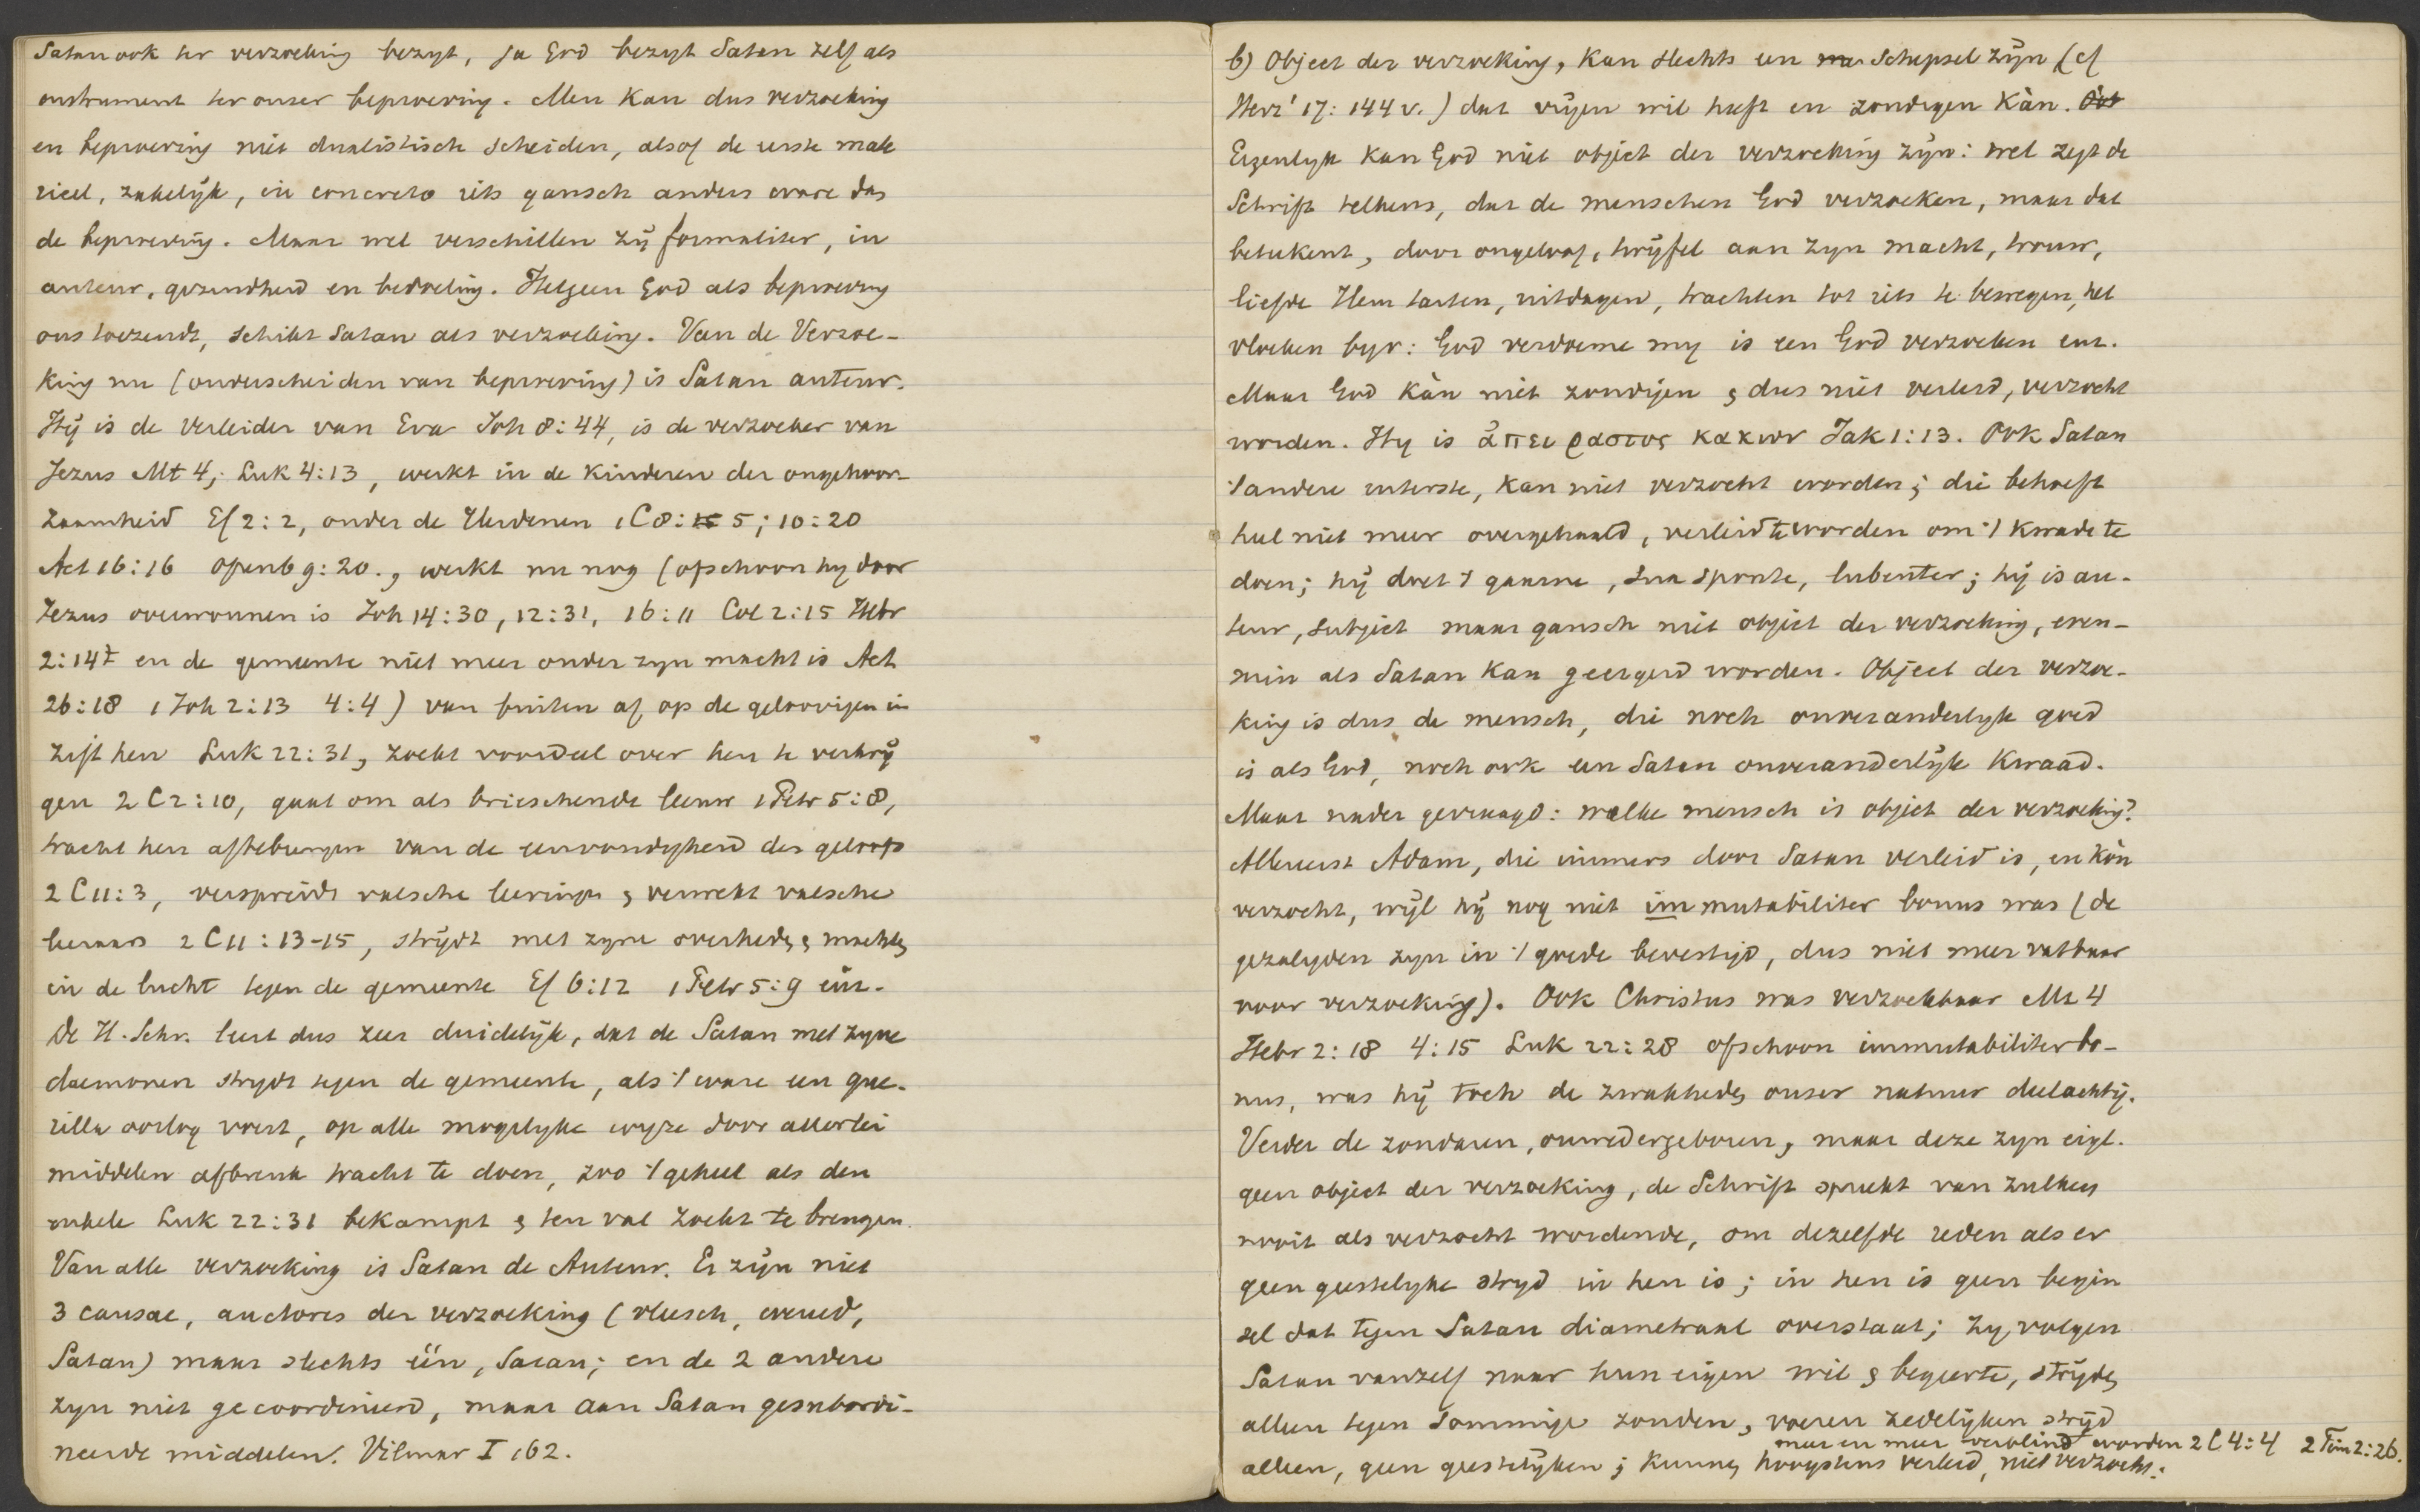 Satan ook ter verzoeking bezigt, ja God bezigt Satan zelf als
instrument ter onzer beproeving. Men kan dus verzoeking
en beproeving niet dualistisch scheiden, alsof de eerste mate
rieel, zakelijk, in concreto iets gansch anders ware dan
de beproeving. Maar wel verschillen zij formaliter, in
auteur, gezindheid en bedoeling. Hetgeen God als beproeving
ons toezendt, schikt Satan als verzoeking. Van de Verzoe-
king nu (onderscheiden van beproeving) is Satan auteur.
Hij is de Verleider van Eva Joh 8:44, is de verzoeker van
Jezus Mt 4; Luk 4:13, werkt in de kinderen der ongehoor-
zaamheid Ef 2:2, onder de Heidenen 1 C 8: 5; 10:20
Act 16:16 Openb 9:20., werkt nu nog (ofschoon hy door
Jezus overwonnen is Joh 14:30, 12:31, 16:11 Col 2:15 Hebr
2:14 en de gemeente niet meer onder zyn macht is Act
26:18 1 Joh 2:13 4:4) van buiten af op de geloovigen in
zift hen Luk 22:31, zoekt voordeel over hen te verkrij
gen 2 C 2:10, gaat om als brieschende leeuw 1 Petr 5:8,
tracht hen aftebrengen van de eenvoudigheid des geloofs
2 C 11:3, verspreidt valsche leeringen & verwekt valsche
leeraars 2 C 11:13-15, strijdt met zyne overheden & machten
in de lucht tegen de gemeente Ef 6:12 1 Petr 5:9 enz.
De H. Schr. leert dus zeer duidelijk, dat de Satan met zyne
daemonen strydt tegen de gemeente, als 't ware een gue-
rilla oorlog voert, op alle mogelyke wyze door allerlei
middelen afbreuk tracht te doen, zoo 't geheel als den
enkele Luk 22:31 bekampt & ten val zoekt te brengen.
Van alle verzoeking is Satan de Auteur. Er zijn niet
3 causae, auctores der verzoeking (vleesch, wereld,
Satan) maar slechts één, Satan; en de 2 andere
zyn niet gecoordineerd, maar aan Satan gesubordi-
neerde middelen. Vilmar I 162.
b) Object der verzoeking, kan slechts een schepsel zijn (cf
Herz² 17:144 v.) dat vrijen wil heeft en zondigen kàn.
Eigenlyk kan God niet object der verzoeking zijn: wel zegt de
Schrift telkens, dat de menschen God verzoeken, maar dat
beteekent, door ongeloof, twijfel aan zyn macht, trouw,
liefde Hem tarten, uitdagen, trachten tot iets te bewegen, het
vloeken byv: God verdoeme my is een God verzoeken enz.
Maar God kàn niet zondigen & dus niet verleid, verzocht
worden. Hy is ἀπειραστος κακων Jak 1:13. Ook Satan
't andere uiterste, kan niet verzocht worden; die behoeft
heel niet meer overgehaald, verleid te worden om 't kwade te
doen; hij doet 't gaarne, sua sponte, lubenter; hij is au-
teur, subject maar gansch niet object der verzoeking, even-
min als Satan kan geergerd worden. Object der verzoe-
king is dus de mensch, die noch onveranderlyk goed
is als God, noch ook een Satan onveranderlijk kwaad.
Maar nader gevraagd: welke mensch is object der verzoeking?
Allereerst Adam, die immers door Satan verleid is, en kòn
verzocht, wijl hij nog niet immutabiliter bonus was (de
gezaligden zyn in 't goede bevestigd, dus niet meer vatbaar
voor verzoeking). Ook Christus was verzoekbaar Mt 4
Hebr 2:18 4:15 Luk 22:28 ofschoon immutabiliter bo-
nus, was hij toch de zwakheden onzer natuur deelachtig.
Verder de zondaren, onwedergeboren, maar deze zyn eigl.
geen object der verzoeking, de Schrift spreekt van zulken
nooit als verzocht wordende, om dezelfde reden als er
geen geestelyke stryd in hen is; in hen is geen begin
sel dat tegen Satan diametraal overstaat; zy volgen
Satan vanzelf naar hun eigen wil & begeerte, strijden
alleen tegen sommige zonden, voeren zedelijken strijd
meer en meer verblind worden 2 C 4:4 2 Tim 2:26.
alleen, geen geestelijken; kunnen hoogstens verleid, niet verzocht.